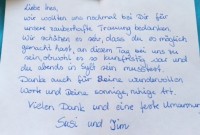 Liebe Ines,
wir wollten uns nochmal bei Dir für
unsere zauberhafte Trauung bedanken.
Wir schätzen es sehr, dass du es möglich
gemacht hast, an diesem Tag bei uns zu
sein, obwohl es so kurzfristig war und
du abends in Sylt sein musstest.
Danke auch für Deine wundervollen
Worte und Deine sonnige, ruhige Art.
Vielen Dank und eine feste Umarmung
Susi und Jim